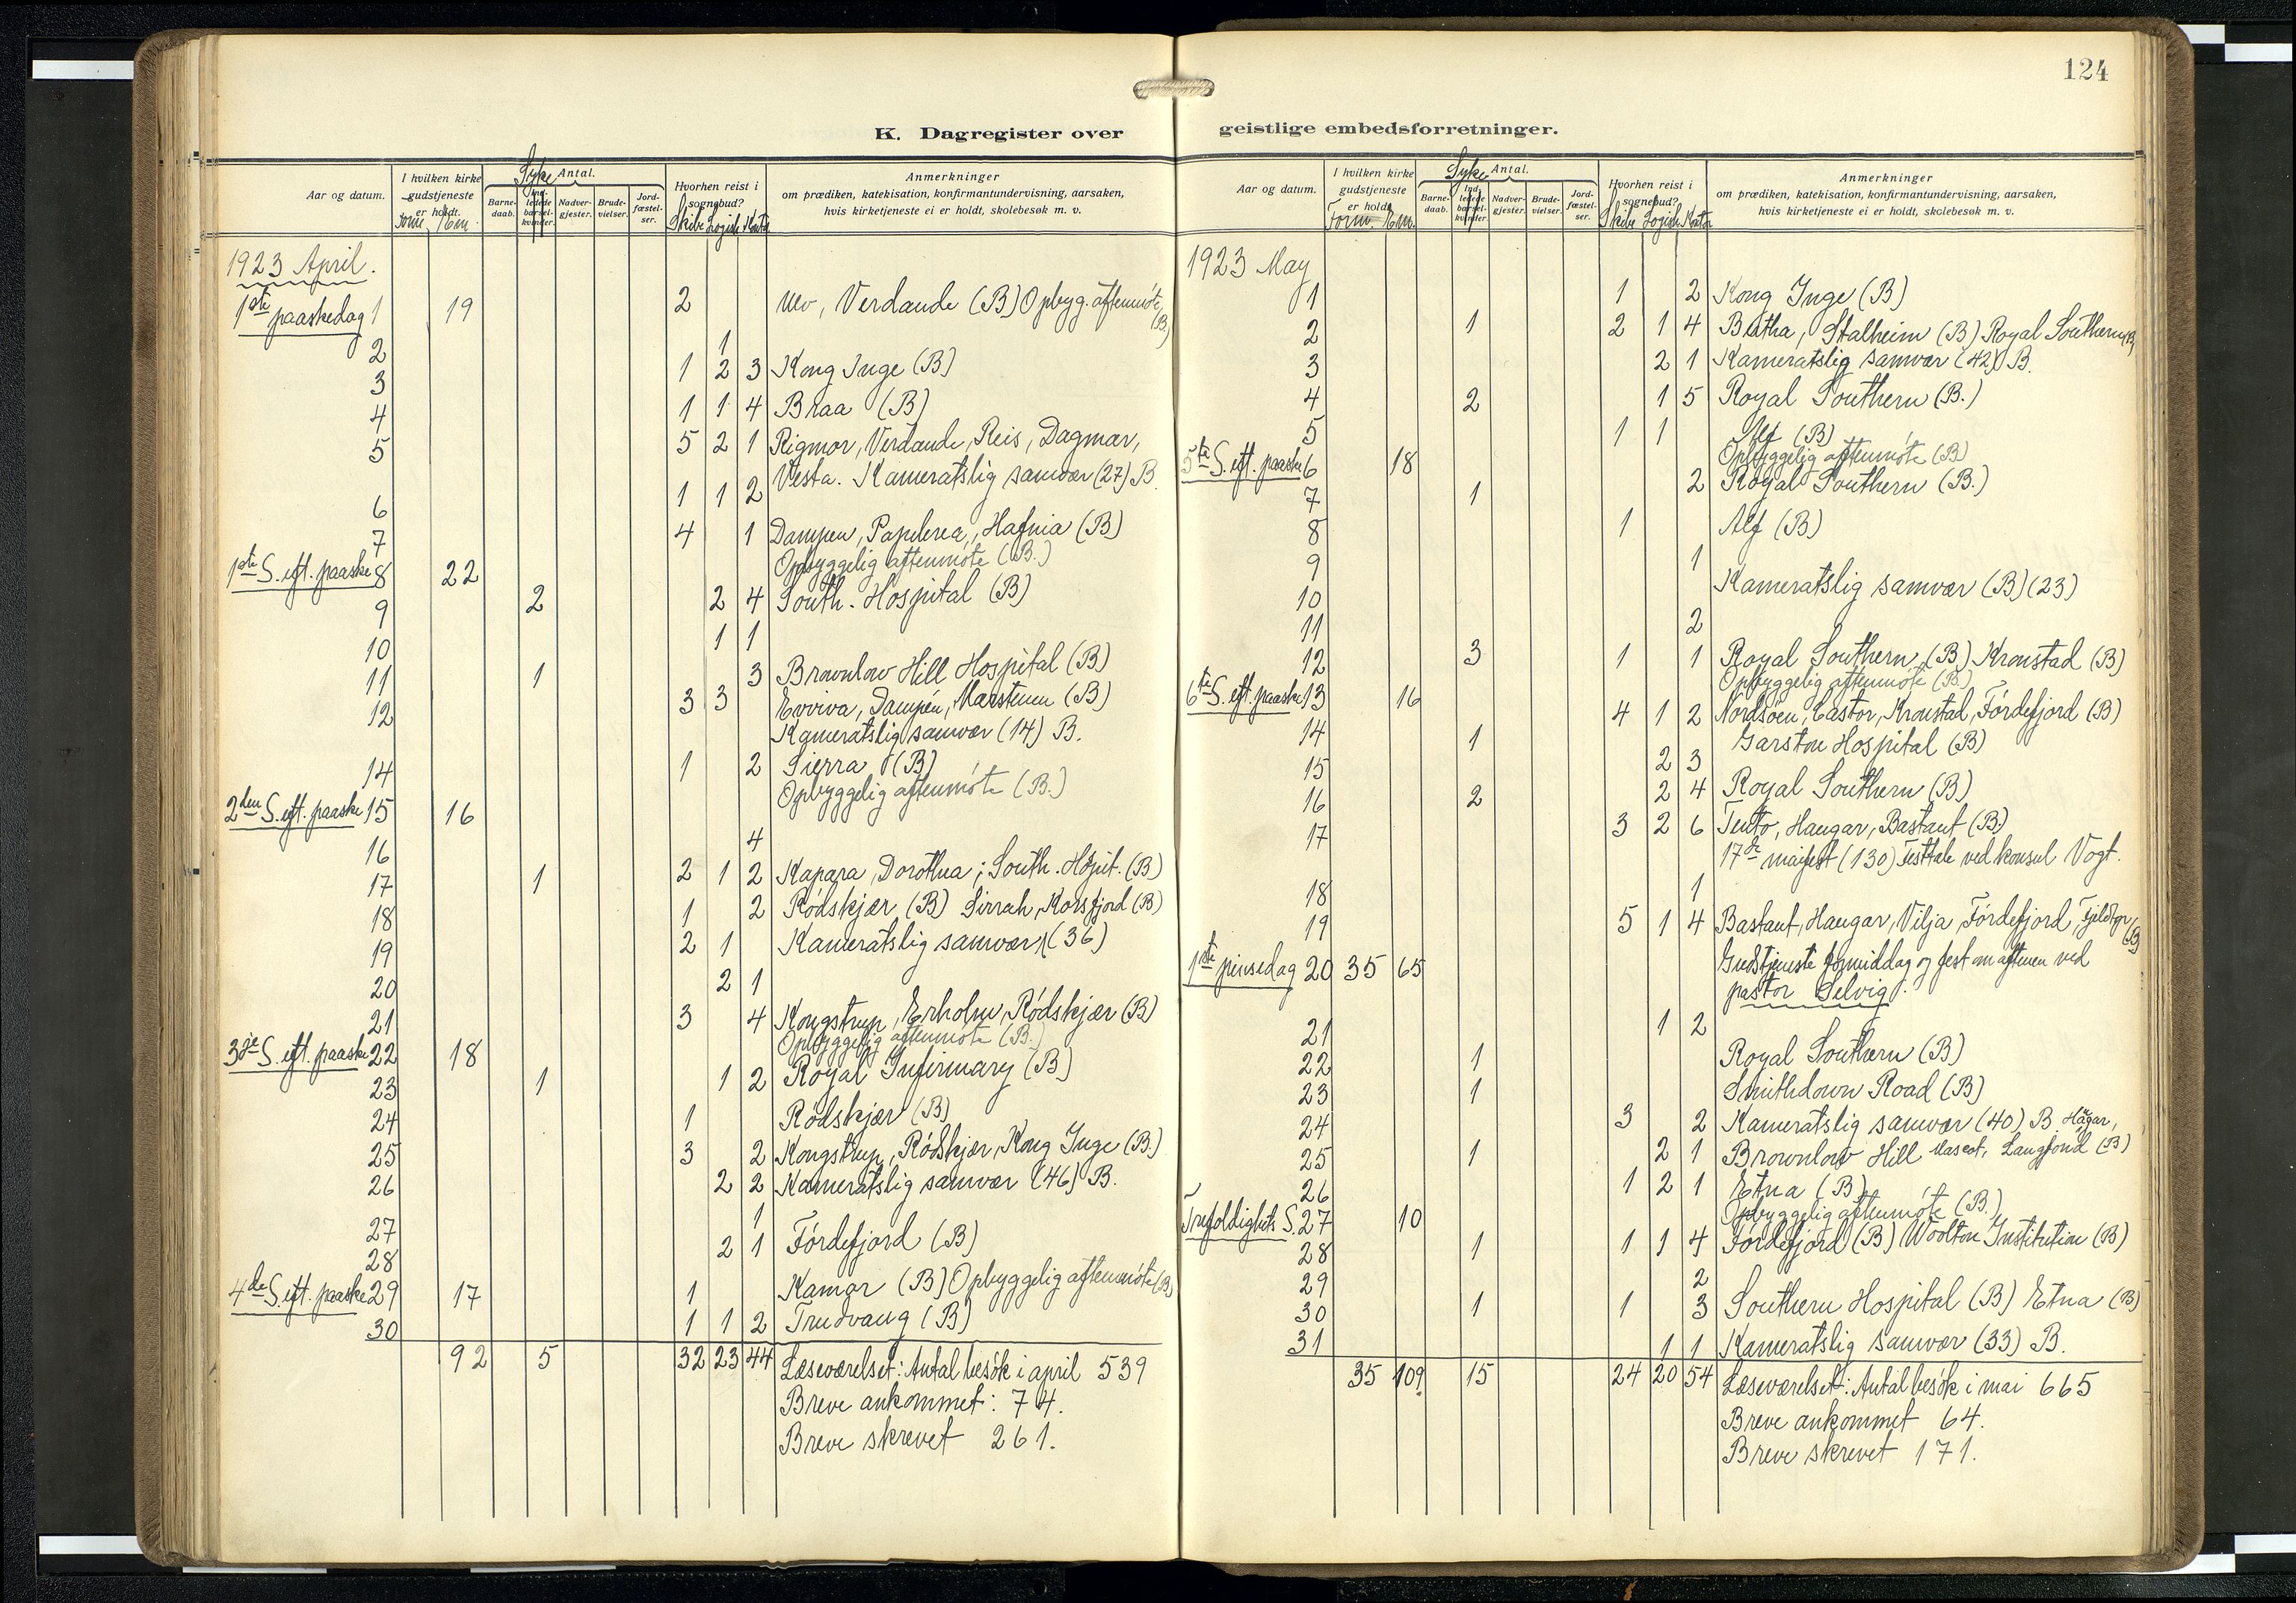 124
K. Dagregister over
Aar og datum.
I hvilken kirke gudstjeneste er holdt.
Form. Em.
Syke
Antal.
Barne-daab.
Ind-ledede barsel-kvinder.
Nadver-gjester.
Brude-vielser.
Jord-fæstel-ser.
Hvorhen reist i sognebud?
Skibe Logish Kontor
Anmerkninger
om prædiken, katekisation, konfirmantundervisning, aarsaken,
hvis kirketjeneste ei er holdt, skolebesøk m. v.
1923 April.
1ste paaskedag 1 19 2 Ulv, Verdande (B) Opbyg. aftenmöte (B)
2 1
3 1 2 3 Kong Inge (B)
4 1 1 4 Braa (B)
5 5 2 1 Rigmor, Verdande, Reis, Dagmar,
Vesta. Kameratslig samvær (27) B
6 1 1 2
7 4 1 Dampen, Papelera, Hafnia (B)
1ste S. eft. paaske 8 22 Opbyggelig aftenmöte (B.)
9 2 2 4 South. Hospital (B)
10 1 1
11 1 3 Brownlow Hill Hospital (B)
12 3 3 Evviva, Dampen, Marstenen (B)
Kameratslig samvær (14) B.
14 1 2 Sierra (B)
2den S. eft. paaske 15 16 Opbyggelig aftenmöte (B.)
16 4
17 1 2 1 2 Kapara, Dorothea; South. Hospit. (B)
18 1 2 Rödskjær (B) Sirrah, Korsfjord (B)
19 2 1 Kameratslig samvær (36)
20 2 1
21 3 4 Kongstrup, Erholm, Rödskjær (B)
3je S. eft. paaske 22 18 Opbyggelig aftenmöte (B.)
23 1 1 2 Royal Infirmary (B)
24 1 Rödskjær (B)
25 3 2 Kongstrup, Rödskjær, Kong Inge (B.)
26 2 2 Kameratslig samvær (46) B.
27 1
28 2 1 Fördefjord (B)
4de S. eft. paaske 29 17 1 Kamar (B) Opbyggelig aftenmöte (B)
30 1 1 2 Trudvang (B)
92 5 32 23 44 Læseværelset: Antal besök i april 539
Breve ankommet: 74.
Breve skrevet 261.
geistlige embedsforretninger.
Aar og datum.
I hvilken kirke gudstjeneste er holdt.
Form. Em.
Syke
Antal.
Barne-daab.
Ind-ledede barsel-kvinder.
Nadver-gjester.
Brude-vielser.
Jord-fæstel-ser.
Hvorhen reist i sognebud?
Skibe Logish Kontor
Anmerkninger
om prædiken, katekisation, konfirmantundervisning, aarsaken,
hvis kirketjeneste ei er holdt, skolebesøk m. v.
1923 May
1 1 2 Kong Inge (B)
2 1 2 1 4 Bratha, Stalheim (B) Royal Southern (B)
3 2 1 Kameratslig samvær (42) B.
4 2 1 5 Royal Southern (B.)
5 1 1 Alf (B)
5te S. eft. paaske 6 18 Opbyggelig aftenmöte (B)
7 1 2 Royal Southern (B.)
8 1 Alf (B)
9 1
10 Kameratslig samvær (B) (23)
11 2
12 3 1 1 Royal Southern (B) Kronstad (B)
6te S. eft. paaske 13 16 Opbyggelig aftenmöte (B)
14 1 4 1 2 Nordsöen, Castor, Kronstad, Fördefjord (B)
Garston Hospital (B)
15 2 3
16 2 2 4 Royal Southern (B)
17 3 2 6 Tento, Haugar, Bastant (B.)
17de maifest (130) Festtale ved konsul Vogt.
18 1
19 5 1 4 Bastant, Haugar, Vilja, Fördefjord, (B)
1ste pinsedag 20 35 65 Gudstjeneste formiddag og fest om aftenen ved
pastor Selvig.
21 1 2
22 1 Royal Southern (B)
23 1 Smithdown Road (B)
24 3 2 Kameratslig samvær (40) B. Hågar,
25 1 2 1 Brownlow Hill Mascot, Langfond (B)
26 1 2 1 Etna (B)
Trefoldighets S. 27 10 Opbyggelig aftenmöte (B.)
28 1 1 1 4 Fördefjord (B) Woolton Institution (B)
29 2
30 1 1 3 Southern Hospital (B) Etna (B)
31 1 1 Kameratslig samvær (33) B.
35 109 15 24 20 54 Læseværelset: Antal besök i mai 665
Breve ankommet 64.
Breve skrevet 171.